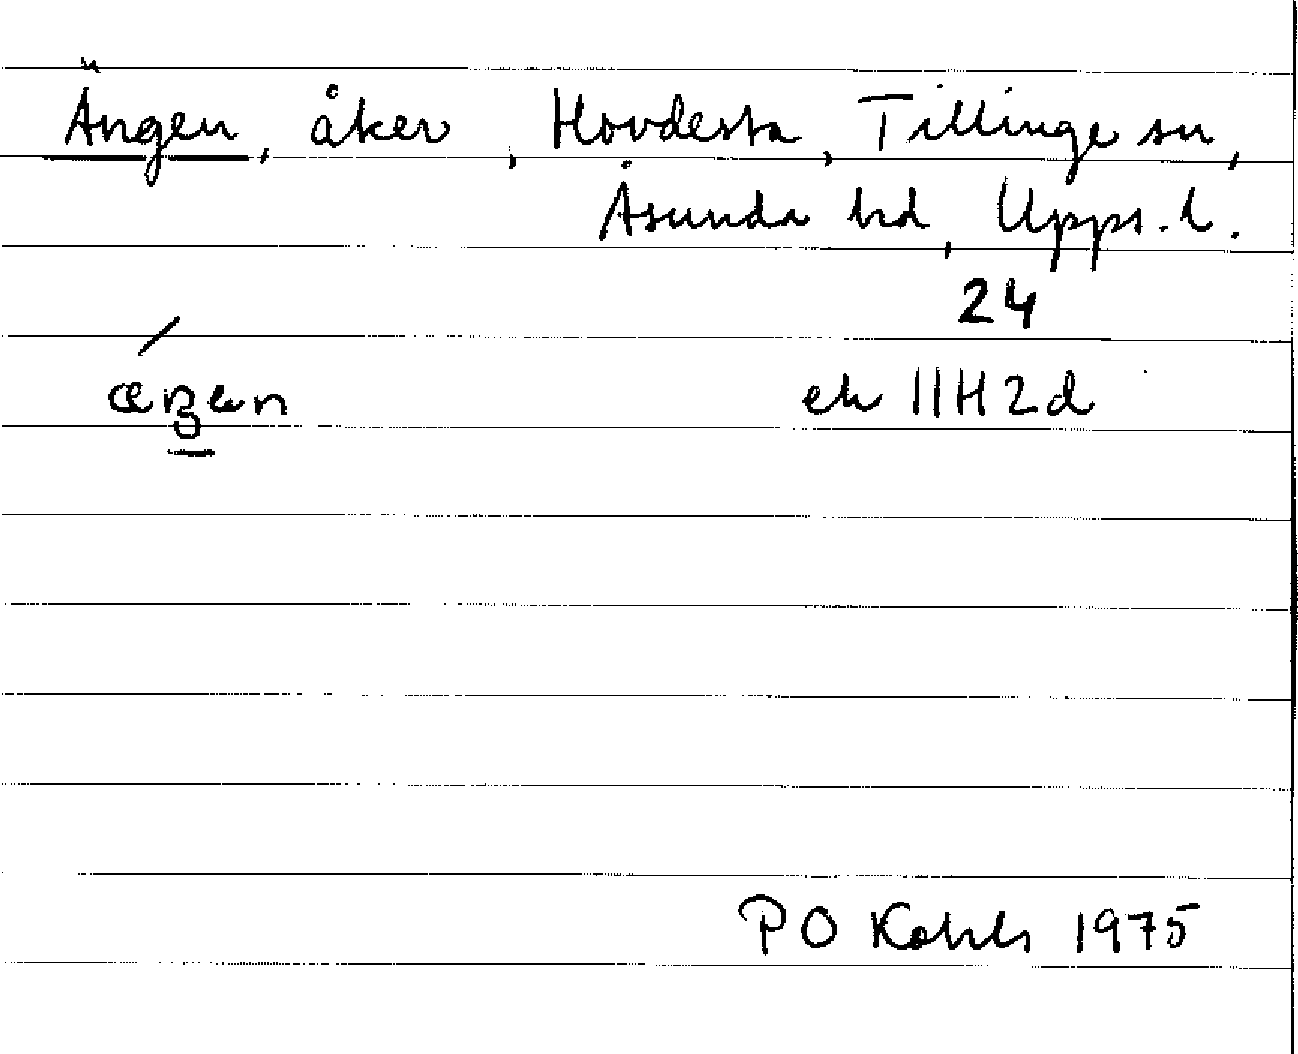 Ängen, åker, Hovdesta, Tillinge sn,
Åsunda hd, Upps. l.
24
ek 11H2d
P O Kohls 1975